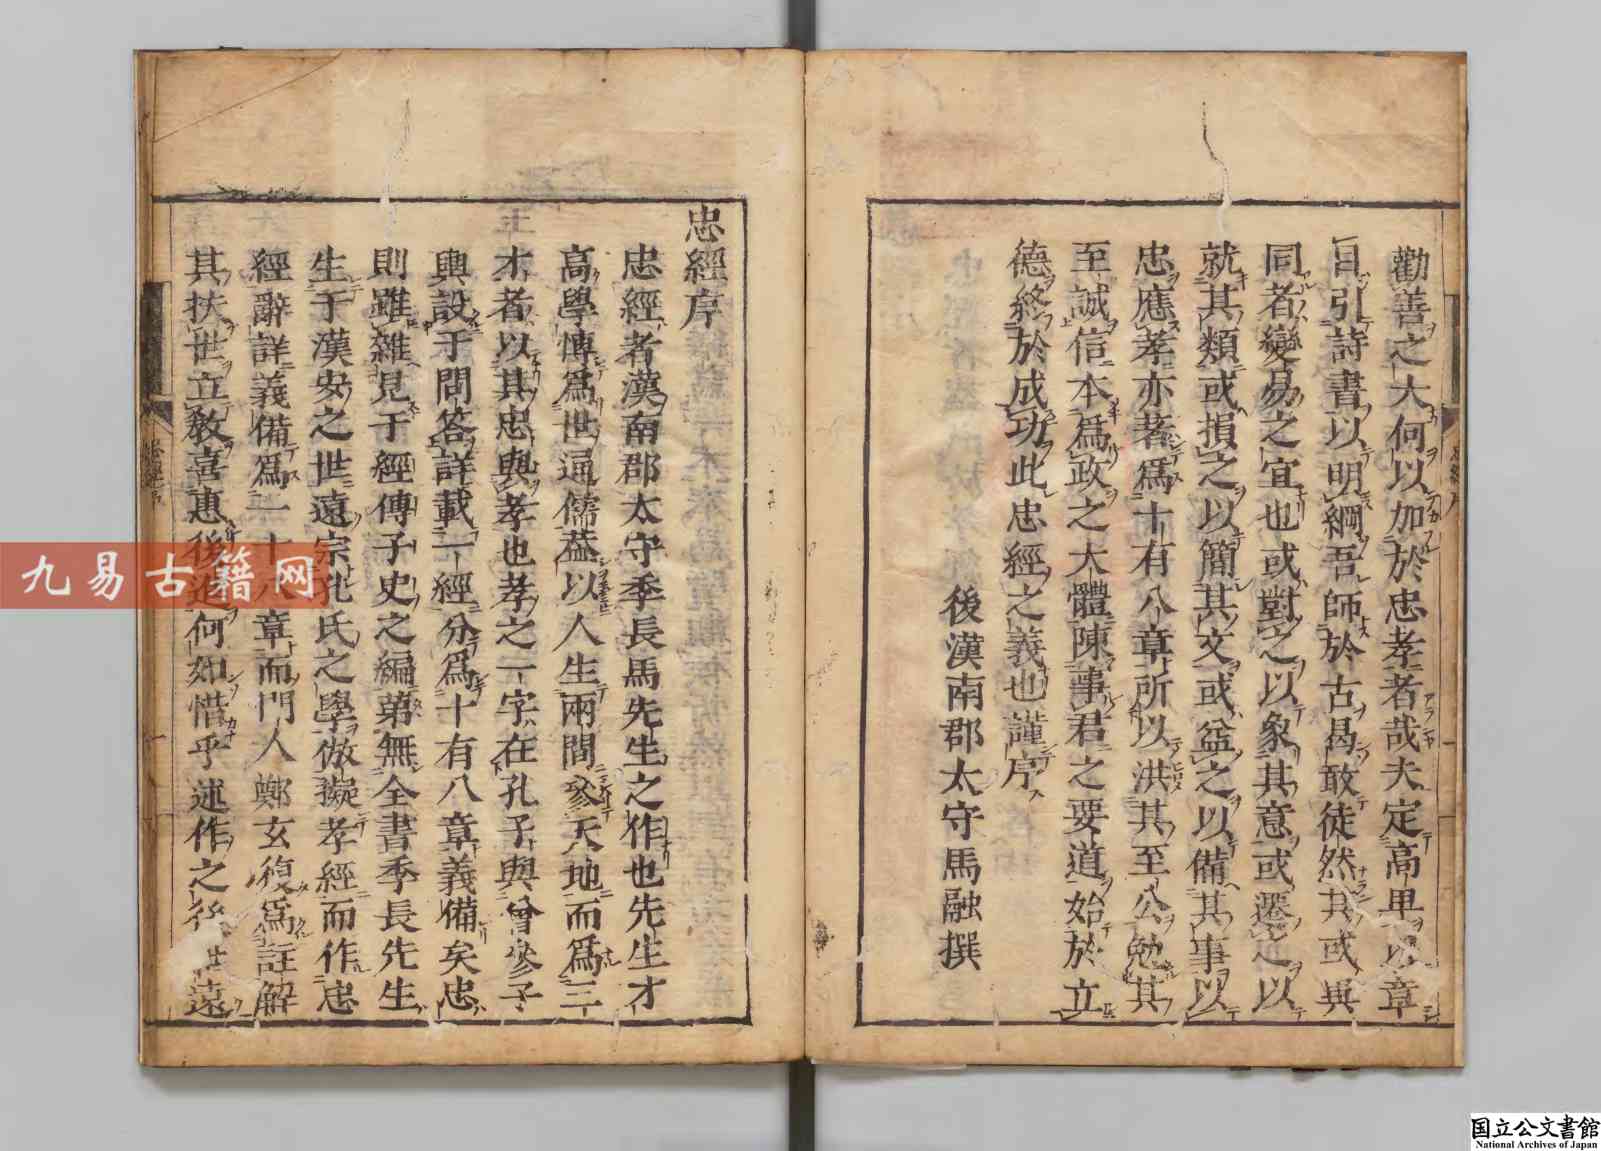 勸善之大何以加於忠孝者哉夫定高卑以章
目引詩書以明綱吾師於古曷敢徒然其或異
同者變易之宜也或對之以象其意或遷之以
就其類或損之以簡其文或益之以備其事以
忠應孝亦著爲十有八章所以洪其至公勉其
至誠信本爲政之大體陳事君之要道始於立
德終於成功此忠經之義也謹序
後漢南郡太守馬融撰
忠經序
忠經者漢南郡太守季長馬先生之作也先生才
高學博爲世通儒葢以人生兩間參天地而爲三
才者以其忠與孝也孝之一字在孔子與曾參子
輿設于問答詳載一經分爲十有八章義備矣忠
則雖雜見于經傳子史之編第無全書季長先生
生于漢安之世遠宗孔氏之學倣擬孝經而作忠
經辭詳義備爲一十八章而門人鄭玄復爲註解
其扶世立教喜惠後進何如惜乎述作之後世遠
忠經序
九易古籍网
国立公文書館
National Archives of Japan